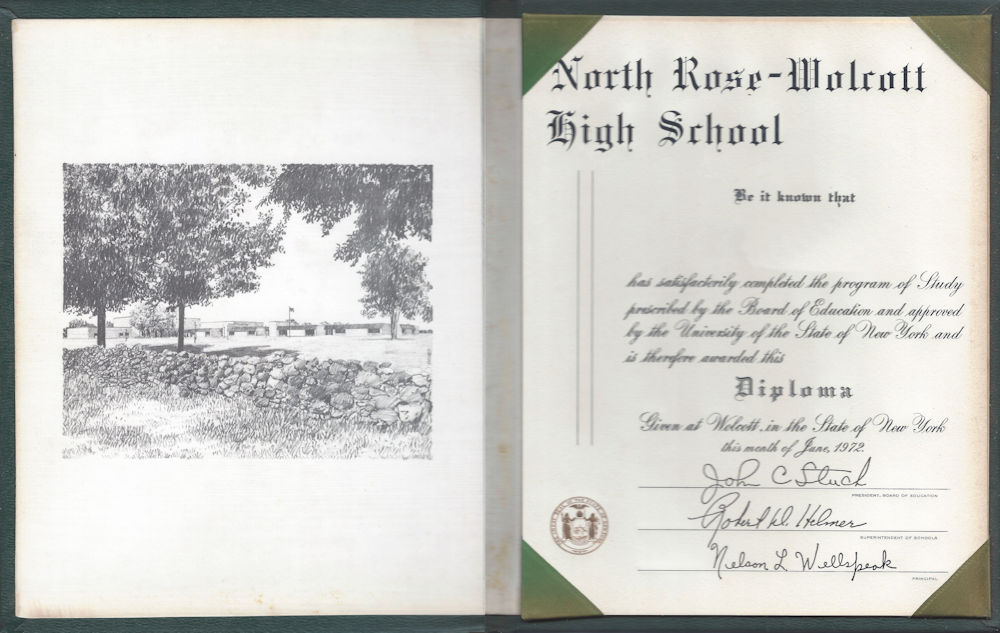 North Rose-Wolcott
High School
Be it known that
has satisfactorily completed the program of Study
prescribed by the Board of Education and approved
by the University of the State of New York and
is therefore awarded this
Diploma
Given at Wolcott, in the State of New York
this month of June, 1972.
John C Stuck
PRESIDENT, BOARD OF EDUCATION
Robert D. Helmer
SUPERINTENDENT OF SCHOOLS
Nelson L Wellspeak
PRINCIPAL